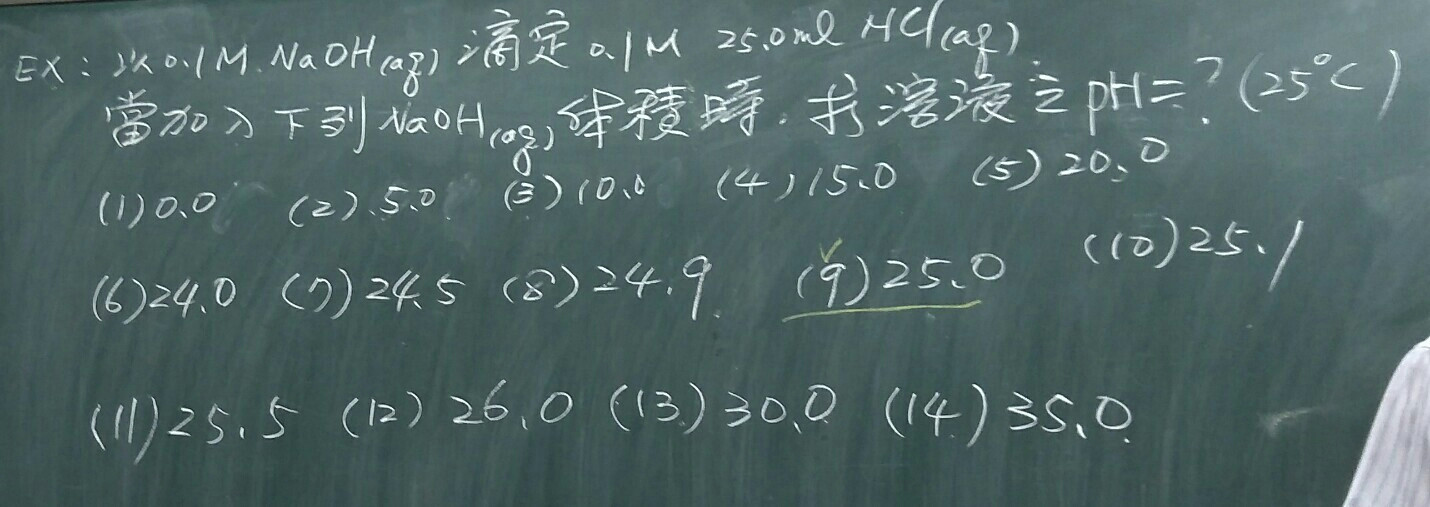 EX：以0.1M NaOH(aq) 滴定 0.1M 25.0ml HCl(aq).
當加入下列NaOH(aq)体積時，求溶液之pH=？(25°C)
(1)0.0 (2).5.0 (3)10.0 (4)15.0 (5)20.0
(6)24.0 (7)24.5 (8)24.9 (9)25.0 (10)25.1
(11)25.5 (12)26.0 (13)30.0 (14)35.0